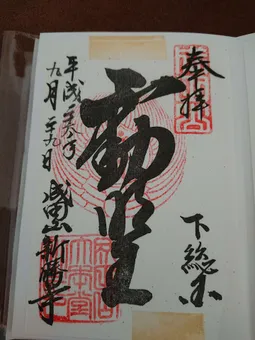 奉拝
下総国
不動明王
平成二六年
九月廿九日
成田山新勝寺